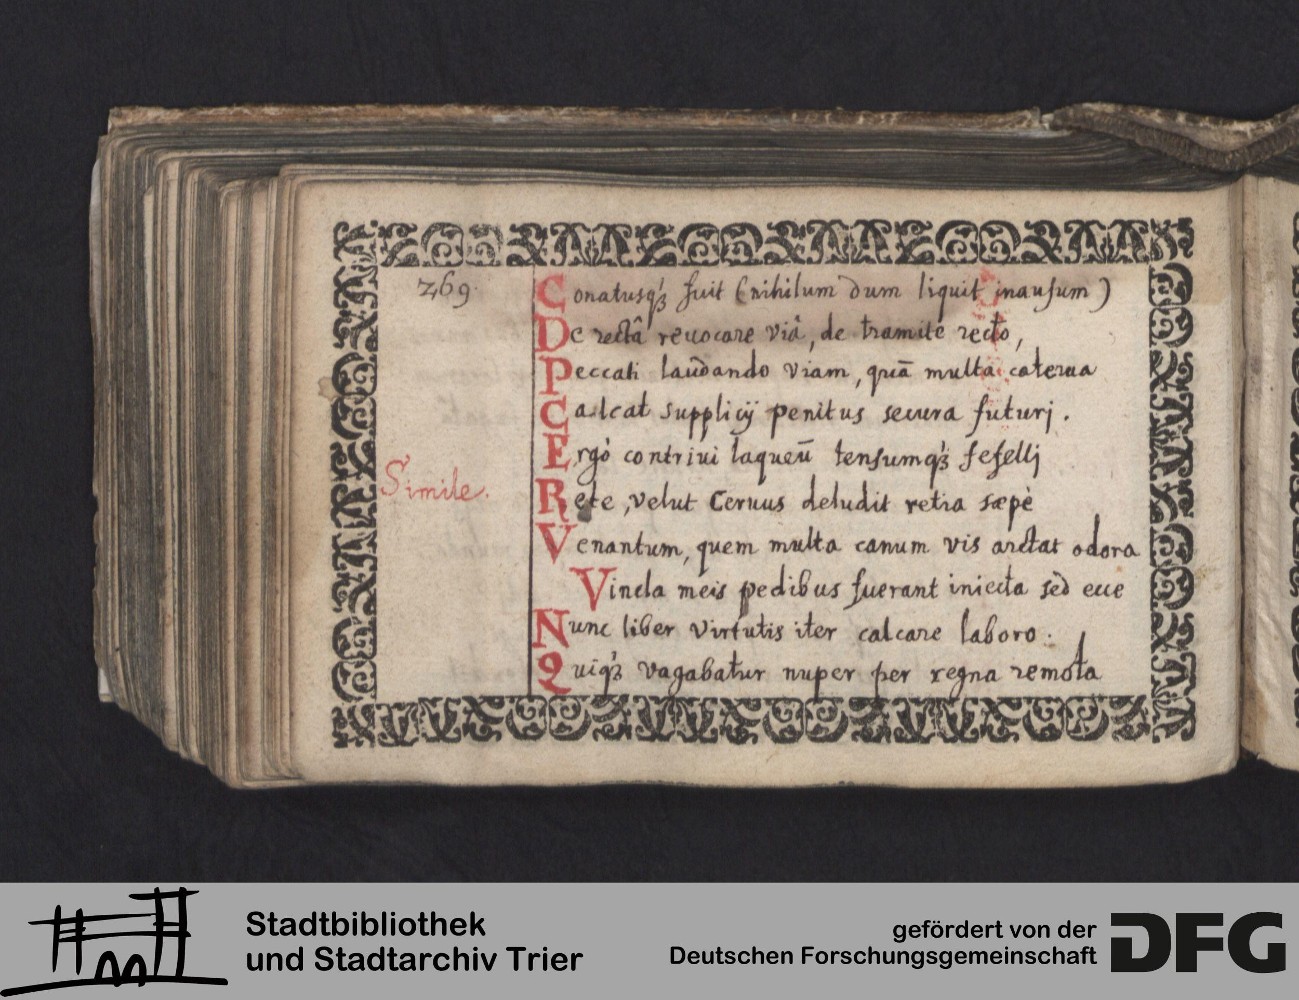 269.
Conatusqꝫ fuit (nihilum dum liquit inausum)
De rectâ reuocare viâ, de tramite recto,
Peccati laudando viam, quā multa caterua
Calcat supplicij penitus secura futurj.
Ergò contriui laqueū tensumqꝫ fefellj
Simile.
Rete, velut Ceruus deludit retia sæpè
Venantum, quem multa canum vis arctat odora
Vincla meis pedibus fuerant iniecta sed ecce
Nunc liber virtutis iter calcare laboro.
Quiqꝫ vagabatur nuper per regna remota
Stadtbibliothek
und Stadtarchiv Trier
gefördert von der
Deutschen Forschungsgemeinschaft
DFG